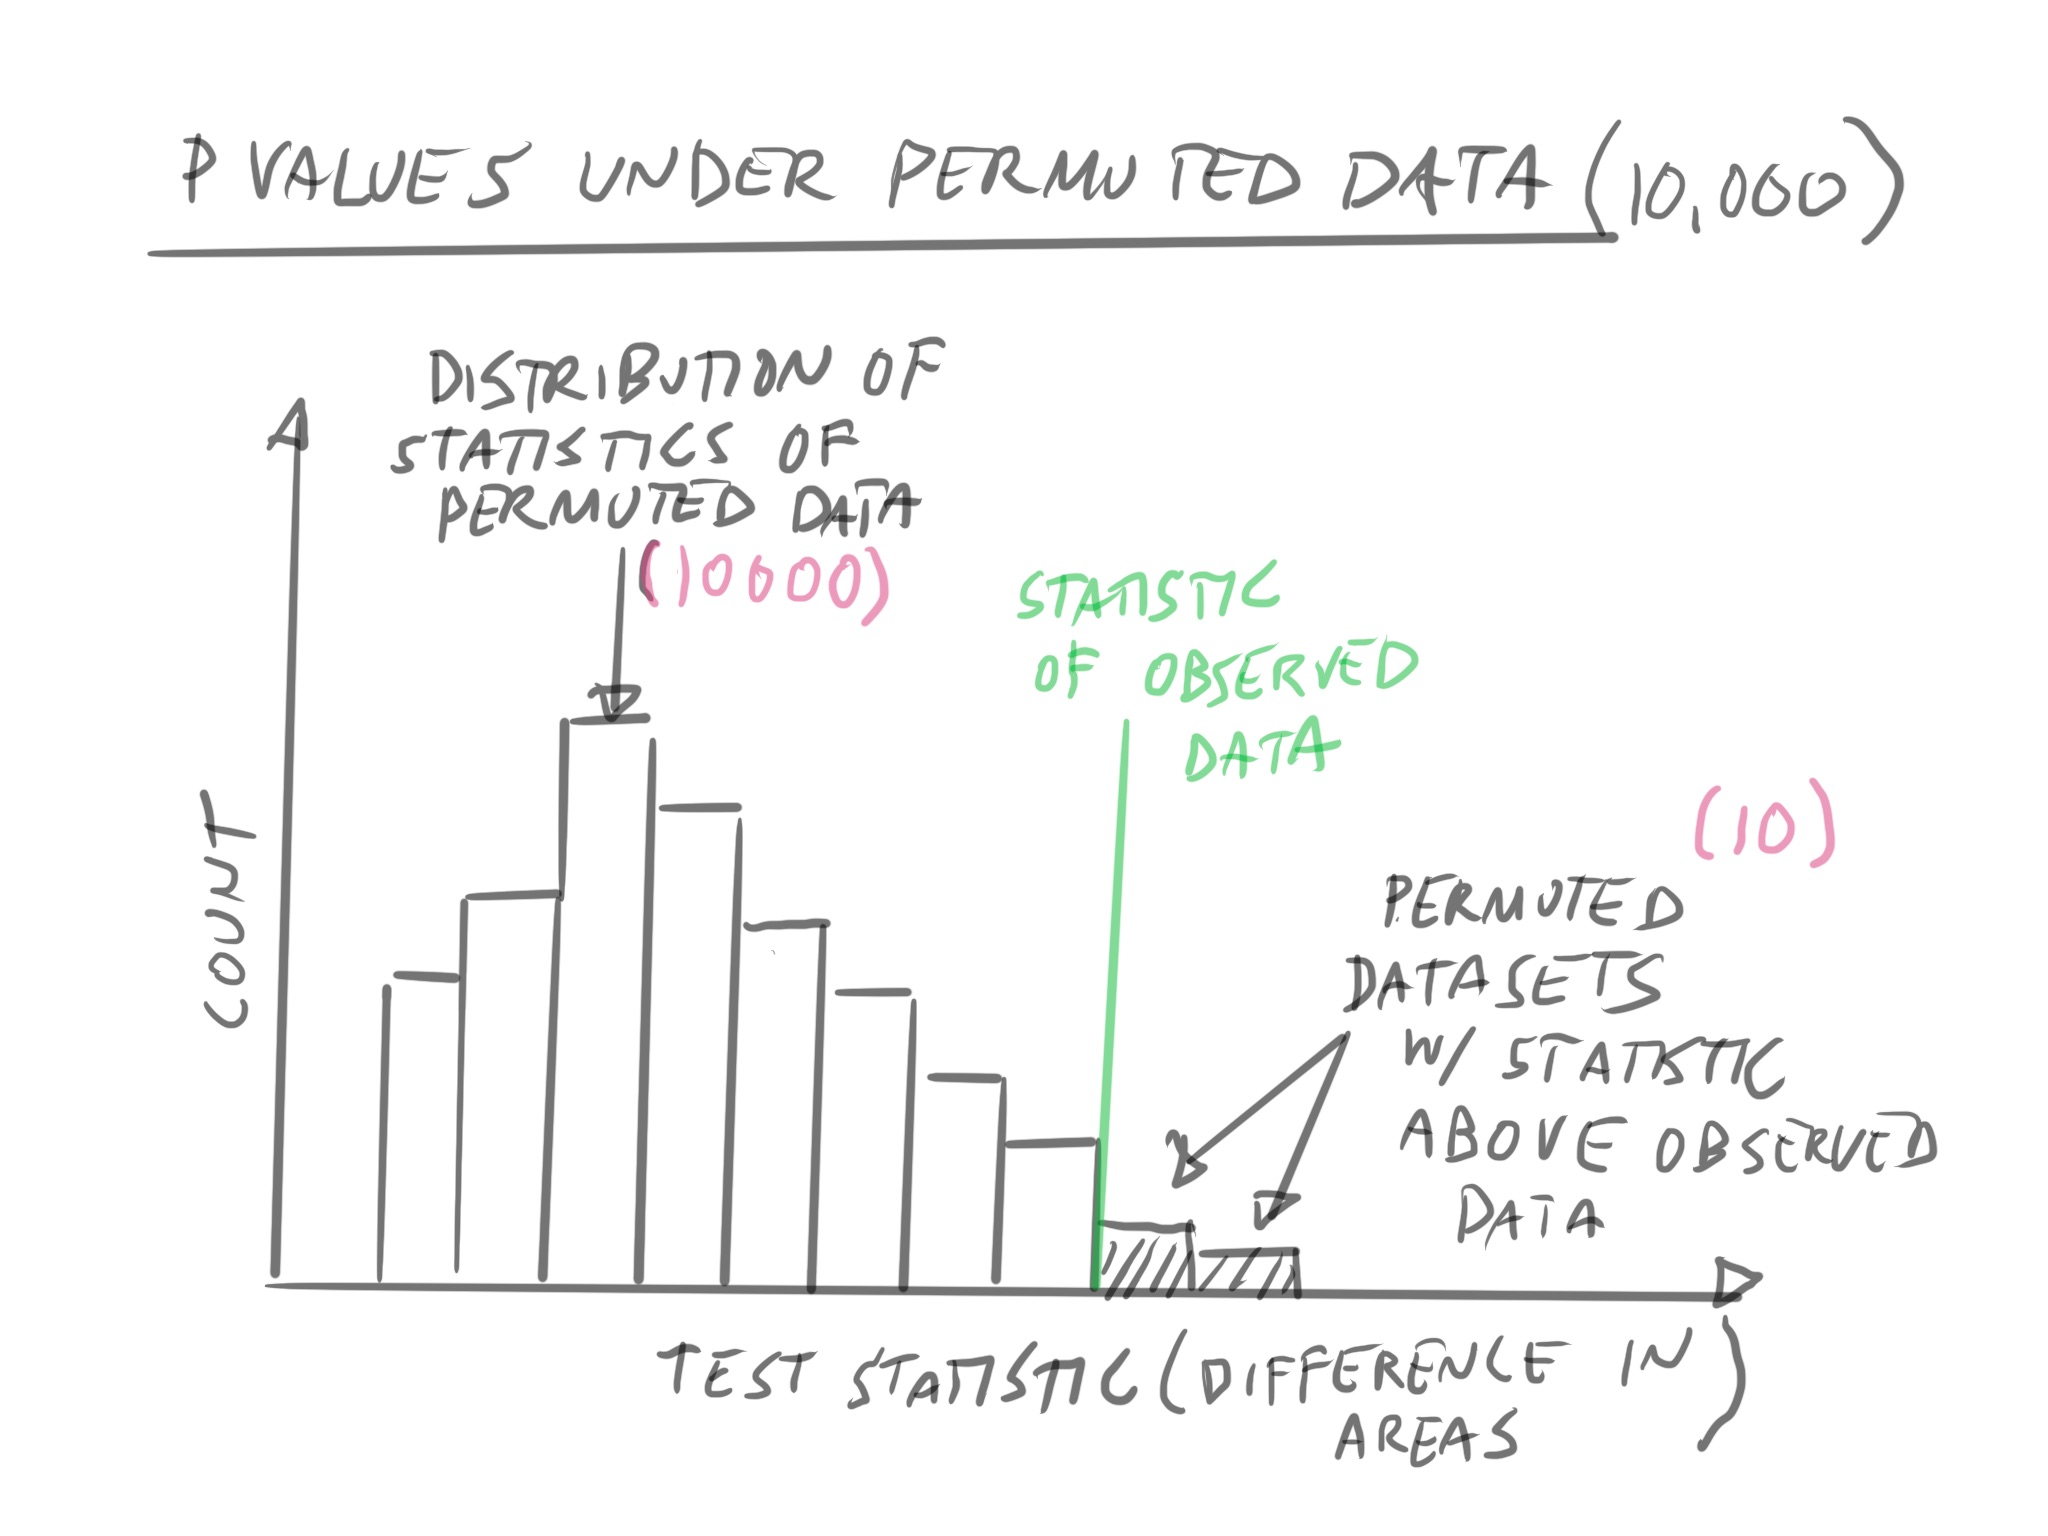 P VALUES UNDER PERMUTED DATA (10,000)
DISTRIBUTION OF
STATISTICS OF
PERMUTED DATA
(10000)
STATISTIC
OF OBSERVED
DATA
(10)
PERMUTED
DATASETS
W/ STATISTIC
ABOVE OBSERVED
DATA
COUNT
TEST STATISTIC (DIFFERENCE IN
AREAS)